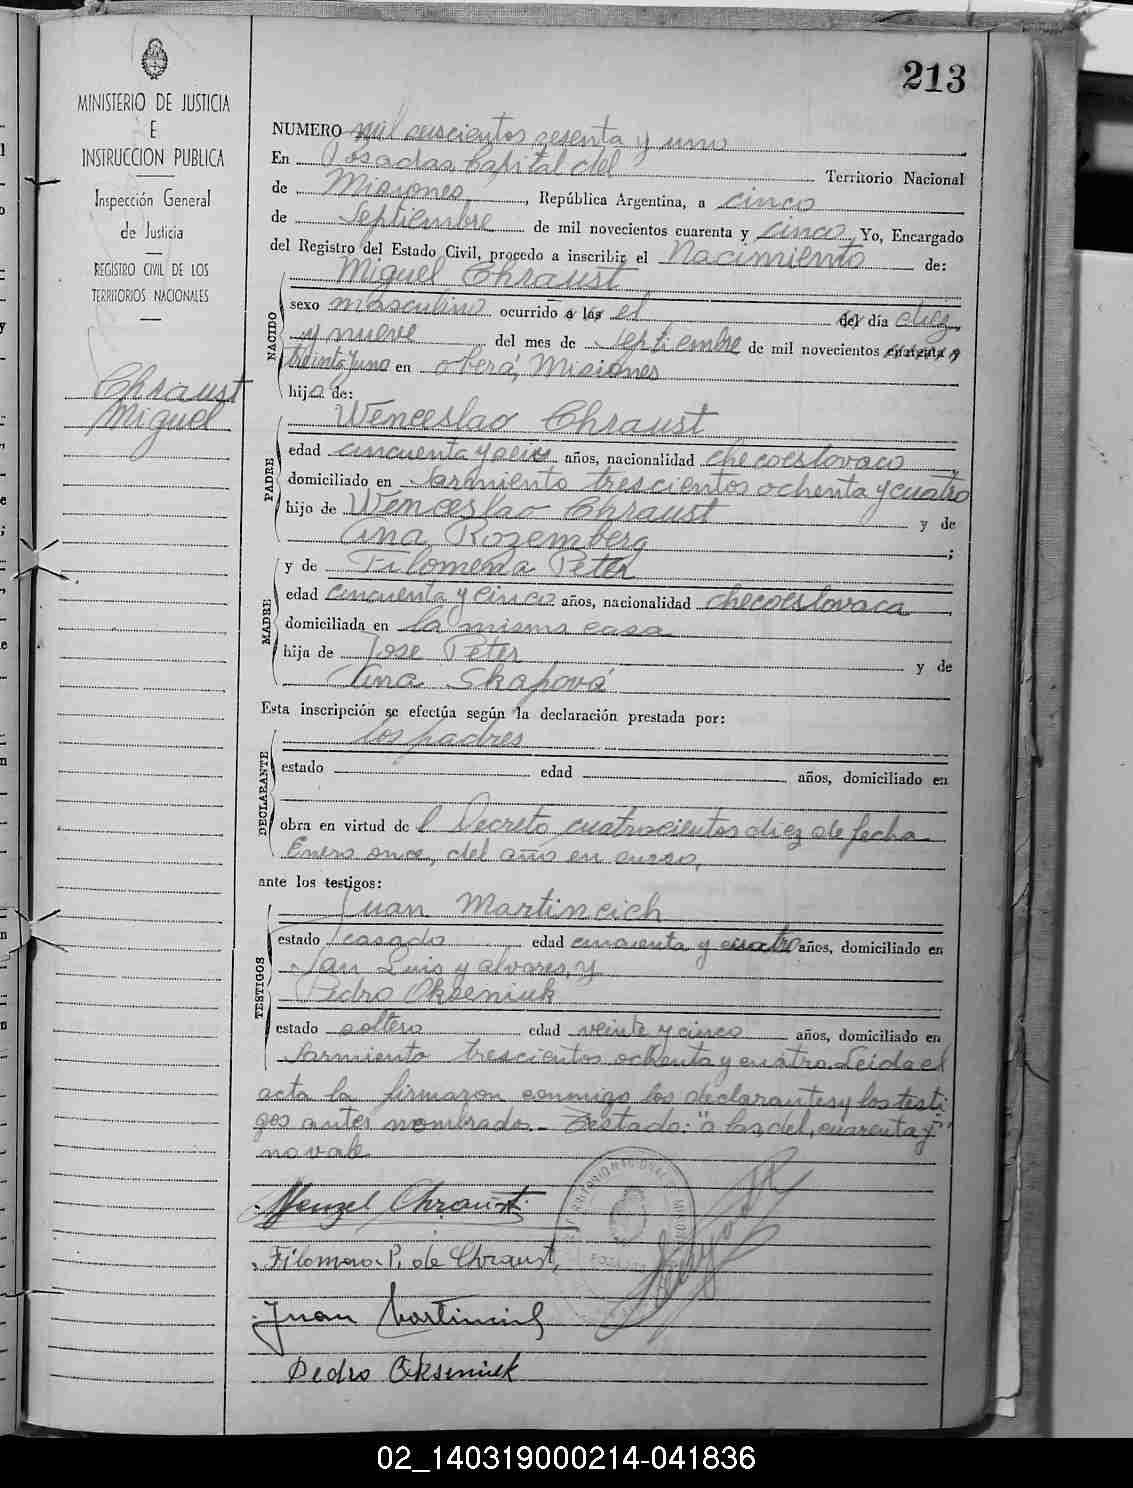 213
MINISTERIO DE JUSTICIA
E
INSTRUCCION PUBLICA
Inspección General
de Justicia
REGISTRO CIVIL DE LOS
TERRITORIOS NACIONALES
Chraust
Miguel
NUMERO mil seiscientos sesenta y uno
En Posadas Capital del Territorio Nacional
de Misiones, República Argentina, a cinco
de Septiembre de mil novecientos cuarenta y cinco Yo, Encargado
del Registro del Estado Civil, procedo a inscribir el Nacimiento de:
NACIDO
Miguel Chraust
sexo masculino ocurrido a las el del día diez
y nueve del mes de Septiembre de mil novecientos cuarenta y
treinta y uno en oberá, Misiones
hijo de:
PADRE
Wenceslao Chraust
edad cincuenta y seis años, nacionalidad checoeslovaco
domiciliado en Sarmiento trescientos ochenta y cuatro
hijo de Wenceslao Chraust y de
Ana Rozemberg;
MADRE
y de Filomena Peter
edad cincuenta y cinco años, nacionalidad checoeslovaca
domiciliada en la misma casa
hija de Jose Peter y de
Ana Skapová
Esta inscripción se efectúa según la declaración prestada por:
DECLARANTE
los padres
estado edad años, domiciliado en
obra en virtud de l Decreto cuatrocientos diez de fecha
Enero once, del año en curso,
ante los testigos:
TESTIGOS
Juan Martincich
estado casado edad cincuenta y cuatro años, domiciliado en
San Luis y alvares, y
Pedro Okseniuk
estado soltero edad veinte y cinco años, domiciliado en
Sarmiento trescientos ochenta y cuatro. Leida el
acta la firmaron conmigo los declarantes y los testi
gos antes nombrados.- Testado: "a las, del, cuarenta y"
no vale
Wenzel Chraust
Filomena P. de Chraust,
Juan Martincich
Pedro Okseniuk
TERRITORIO NACIONAL
02_140319000214-041836